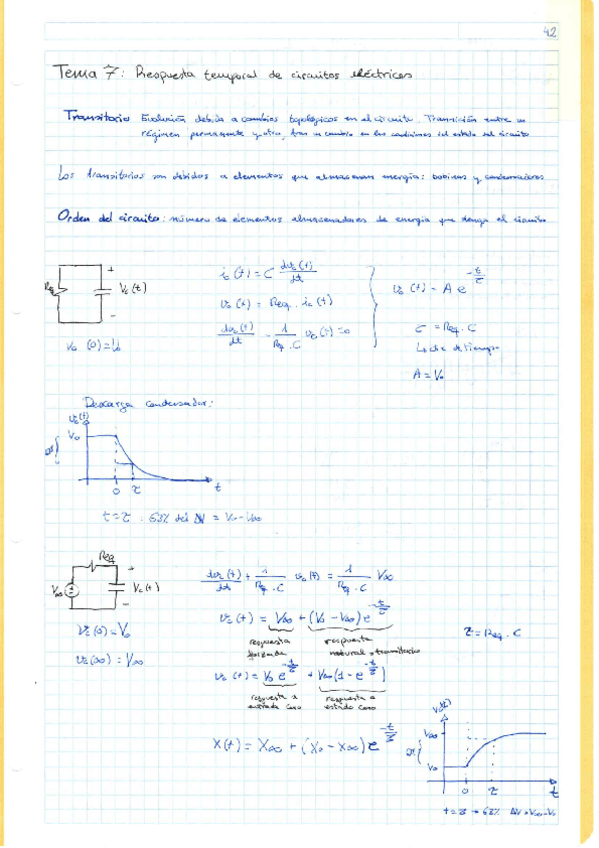 42
Tema 7: Respuesta temporal de circuitos eléctricos
Transitorio Evolución debida a cambios topológicos en el circuito. Transición entre un
régimen permanente y otro, tras un cambio en las condiciones del estado del circuito
Los transitorios son debidos a elementos que almacenan energía: bobinas y condensadores
Orden del circuito: número de elementos almacenadores de energía que tenga el circuito
Req + Vc(t) -
Vc(0)=V0
ic(t) = C dvc(t)/dt
vc(t) = Req. ic(t)
dvc(t)/dt - 1/(Req.C) vc(t) = 0
vc(t) = A e^(-t/τ)
τ = Req.C
A = V0
Descarga condensador:
vc(t)
V0
0 τ t
t=τ : 63% del ΔV = V0-V∞
Req
V∞ + Vc(t) -
vc(0)=V0
vc(∞)=V∞
dvc(t)/dt + 1/(Req.C) vc(t) = 1/(Req.C) V∞
vc(t) = V∞ + (V0-V∞)e^(-t/τ)
τ = Req.C
respuesta forzada
respuesta natural o transitoria
vc(t) = V0 e^(-t/τ) + V∞(1-e^(-t/τ))
respuesta a entrada cero
respuesta a estado cero
X(t) = X∞ + (X0-X∞)e^(-t/τ)
V∞
V0
0 τ t
t=τ → 63% ΔV=V∞-V0